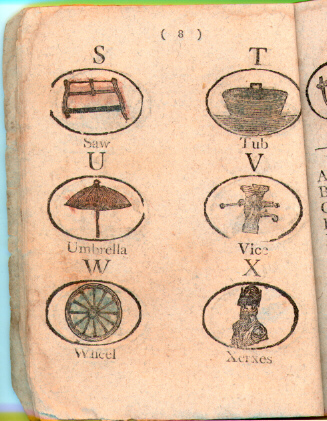 ( 8 )
S T
Saw Tub
U V
Umbrella Vice
W X
Wheel Xerxes